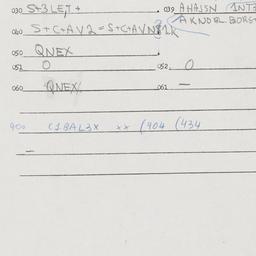 030 S+3 LET, + . 039 AHAJSN (INT
040 S+C+AV2=S+C+AVN
050 QNEX .
051 O 052. O
060 QNEX 061 —
900 C1BAL3X xx (404 (434
—